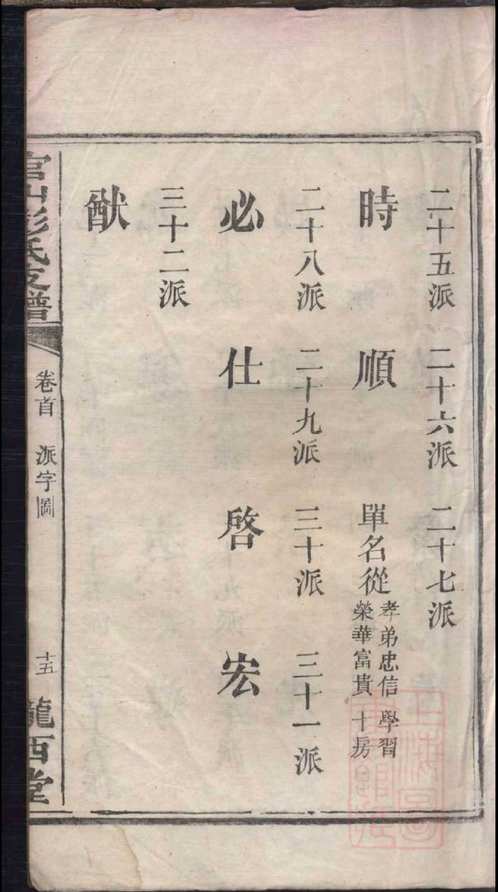 二十五派 二十六派 二十七派
時 順 單名從 孝弟忠信 學習
榮華富貴 十房
二十八派 二十九派 三十派 三十一派
必 仕 啓 宏
三十二派
猷
官山彭氏支譜 卷首 派字圖 十五 隴西堂